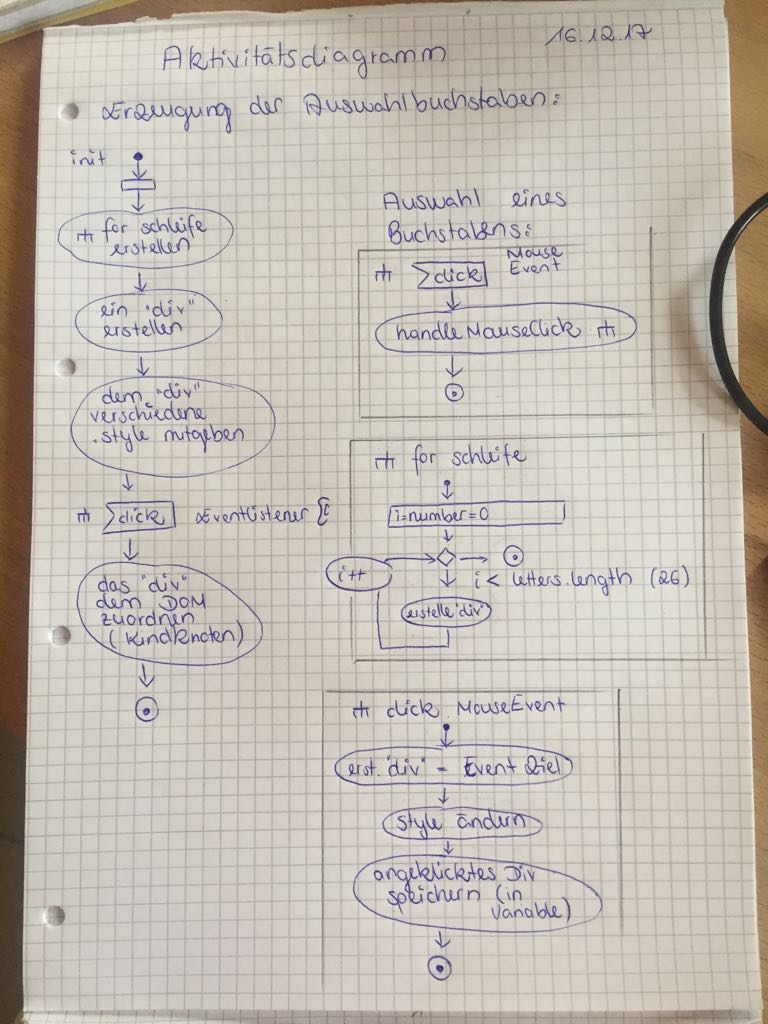 Aktivitätsdiagramm
16.12.17
Erzeugung der Auswahlbuchstaben:
init
for schleife
erstellen
ein "div"
erstellen
dem "div"
verschiedene
.style mitgeben
click EventListener
das "div"
dem DOM
zuordnen
(Kindknoten)
Auswahl eines
Buchstabens:
click
Mouse
Event
handleMouseClick
for schleife
i=number=0
i++
i < letters.length (26)
erstelle "div"
click MouseEvent
erst. "div" = Event Ziel
style ändern
angeklicktes Div
speichern (in
Variable)